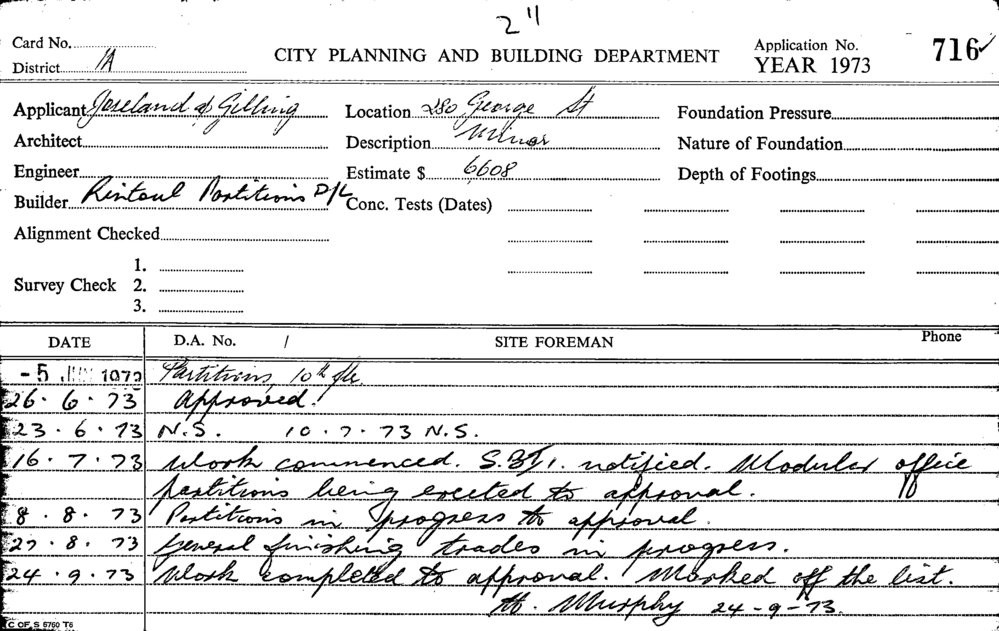 2"
Card No.
CITY PLANNING AND BUILDING DEPARTMENT
Application No. 716
District 1A
YEAR 1973
Applicant Joseland & Gilling Location 280 George St Foundation Pressure
Architect Description Minor Nature of Foundation
Engineer Estimate $ 6608 Depth of Footings
Builder Rintoul Partitions P/L Conc. Tests (Dates)
Alignment Checked
1.
Survey Check 2.
3.
DATE D.A. No. / SITE FOREMAN Phone
-5 JUN 1973 Partitions, 10th flr.
26.6.73 Approved.
23.6.73 N.S. 10.7.73 N.S.
16.7.73 Work commenced. notified. Modular office
partitions being erected to approval.
8.8.73 Partitions in progress to approval.
27.8.73 General finishing trades in progress.
24.9.73 Work completed to approval. Marked off the list.
Murphy 24-9-73.
C OF S 5760 T6